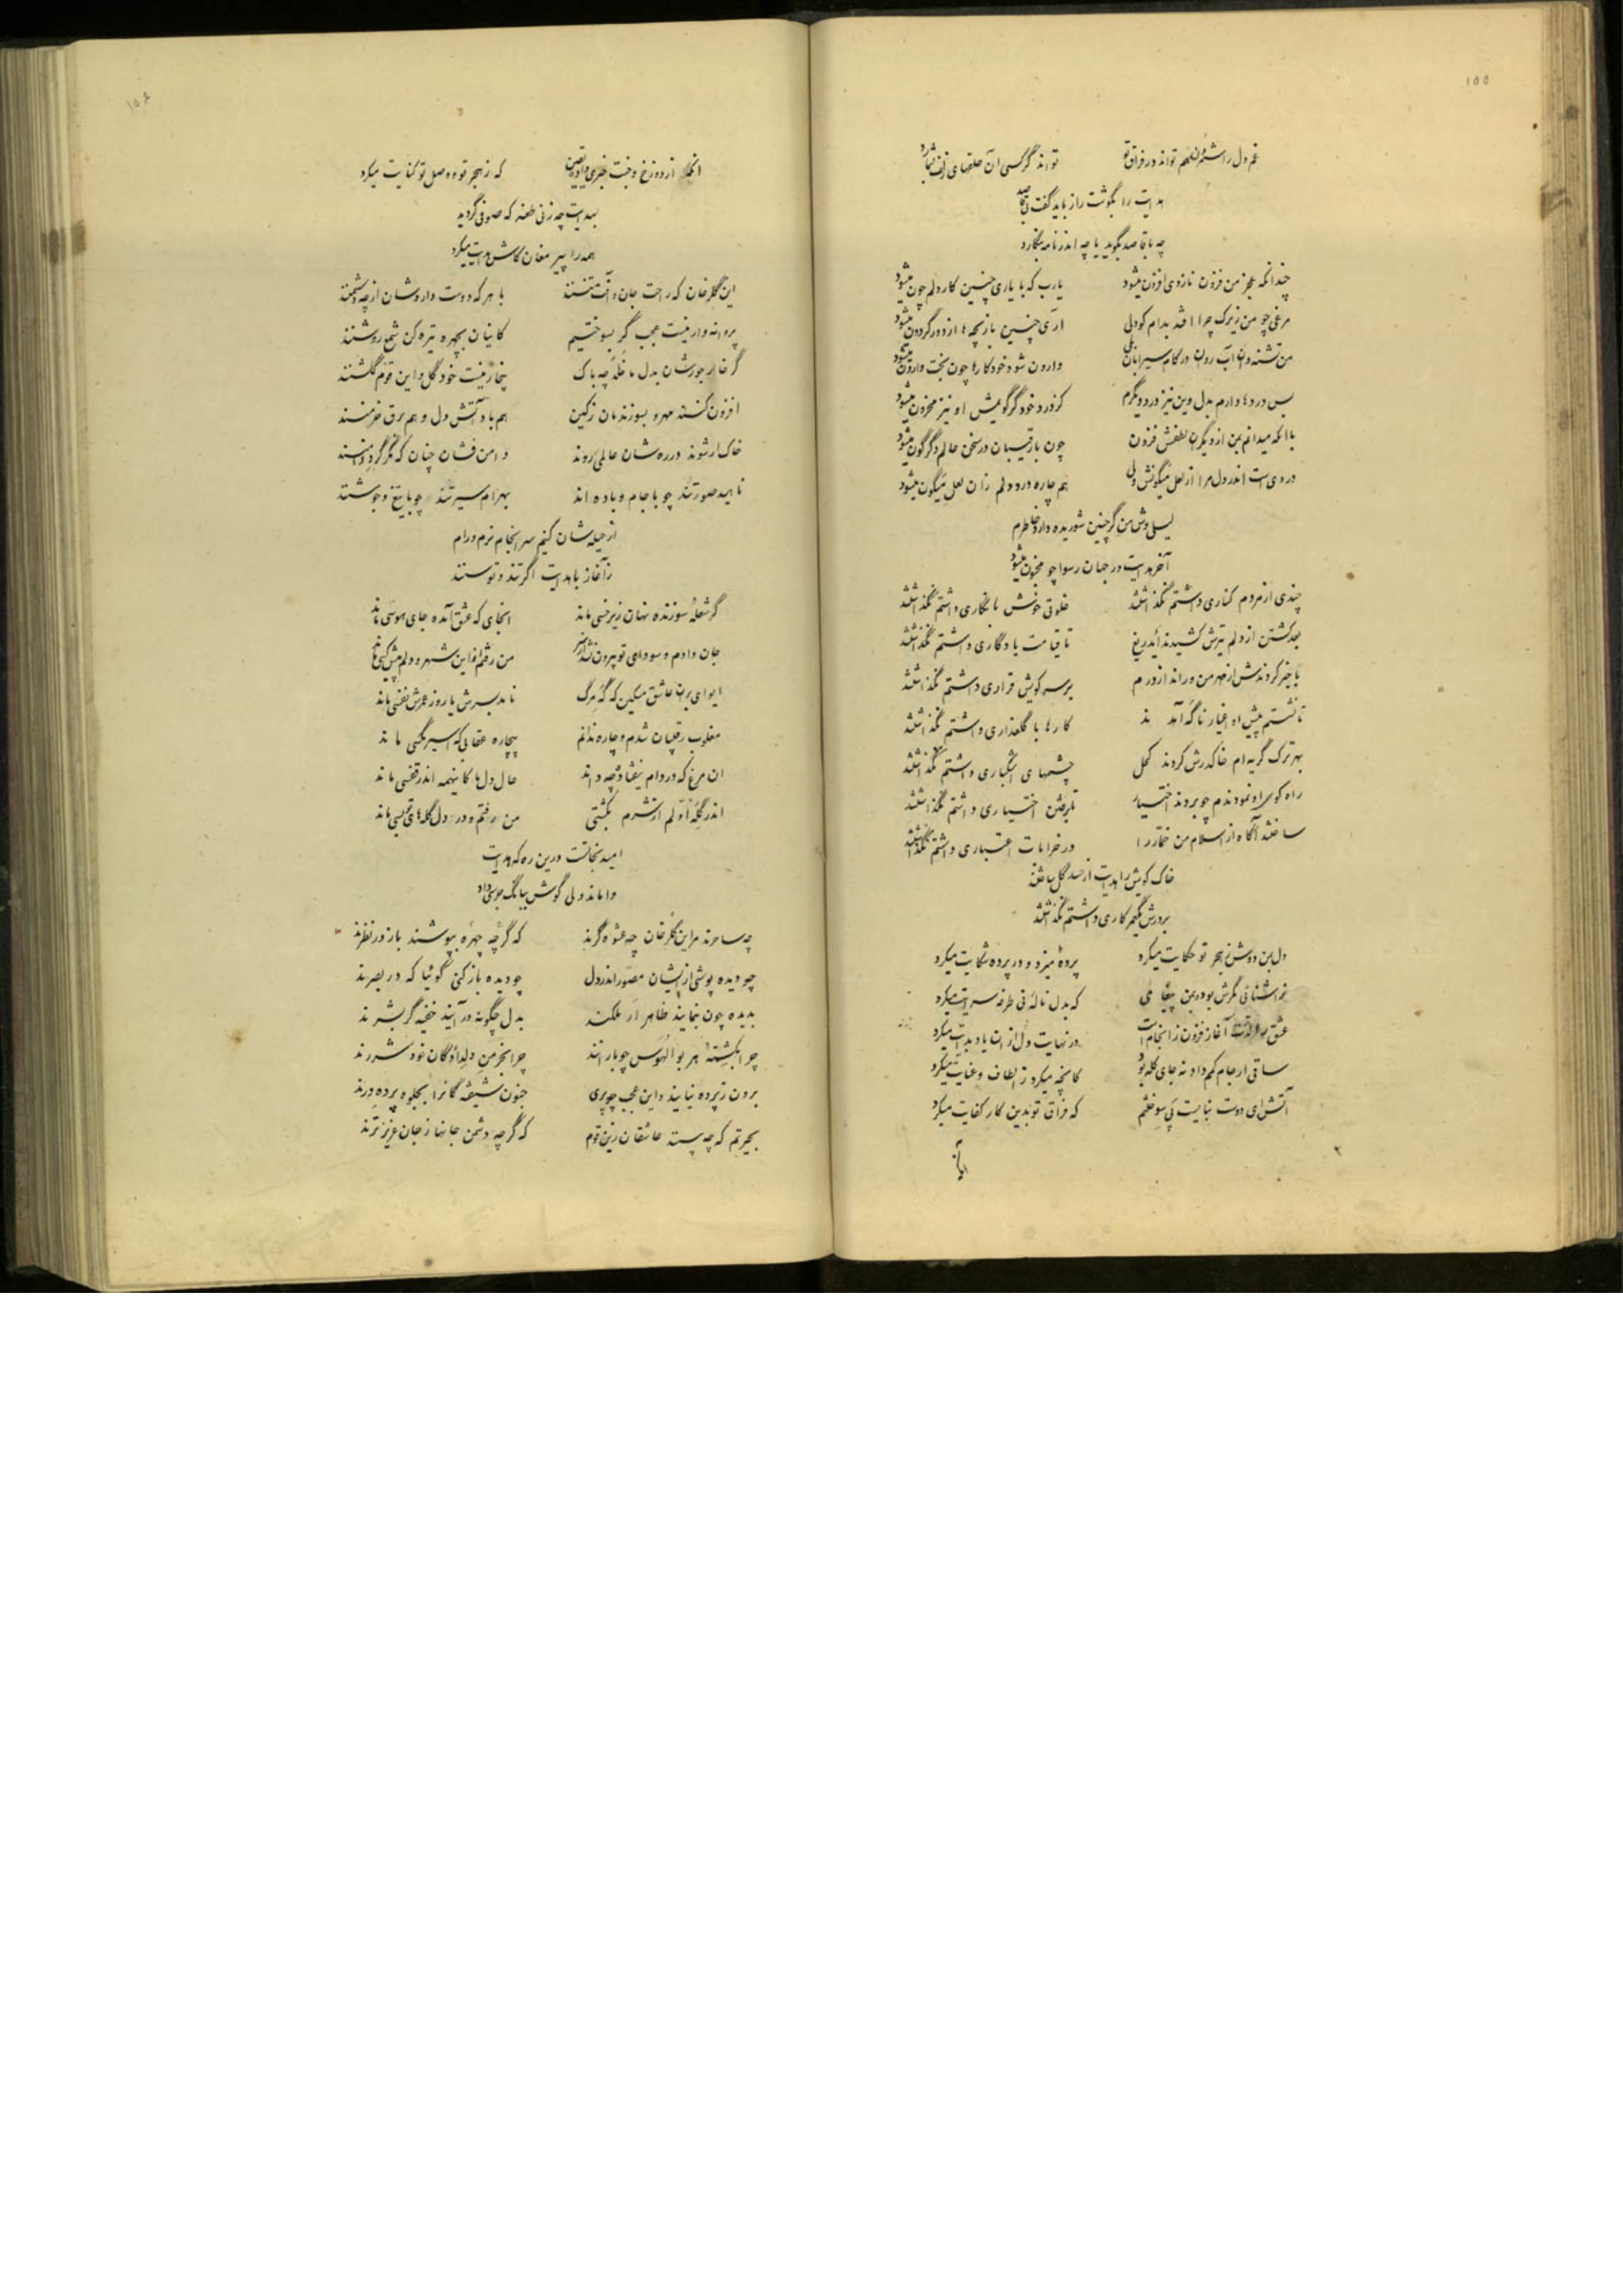 ۱۵۵
غم دل را شمردن هم تواند در فراق تو تواند گر کسی آن حلقهای زلف بشمارد
هدایت را بگوشت راز باید گفت یا قاصد
چه با قاصد بگوید یا چه اندر نامه بنگارد
چندانکه عجز من فزون ناز وی افزون میشود یارب که با یاری چنین کار دلم چون میشود
مرغی چو من زیرک چرا افتد بدام کودکی آری چنین بازیچه ها از دور گردون میشود
من تشنه و آن آب روان در کام سیرابان وارون شود خود کارها چون بخت وارون میشود
بس دردها دارم بدل وین نیز درد دیگرم کز درد خود گر گویمش او نیز محزون میشود
با آنکه میدانم بمن از دیگران لطفش فزون چون با رقیبان در سخن حالم دگرگون میشود
دردی است اندر دل مرا از لعل میگونش ولی هم چاره درد دلم زان لعل میگون میشود
لیلی وش من گر چنین شوریده دارد خاطرم
آخر هدایت در جهان رسوا چو مجنون میشود
چندی از مردم کناری داشتم نگذاشتند خلوتی خوش با نگاری داشتم نگذاشتند
بعد کشتن از دلم تیرش کشیدند ایدریغ تا قیامت یادگاری داشتم نگذاشتند
با خبر کردندش از مهر من و راند از درم بر سر کویش قراری داشتم نگذاشتند
تا نشستم پیش او اغیار ناگه آمدند کارها با گلعذاری داشتم نگذاشتند
بهر ترک گریه ام خاک درش کردند کحل چشمهای اشکباری داشتم نگذاشتند
راه کوی او نمودندم چو بردند اختیار تا برفتن اختیاری داشتم نگذاشتند
ساختند آگاه از اسلام من خمار را در خرابات اعتباری داشتم نگذاشتند
خاک کویش را هدایت از حسد گل ساختند
بر درش بگیم کاری داشتم نگذاشتند
دل بمن دوش ز هجر تو حکایت میکرد پرده میزد و در پرده شکایت میکرد
نواشنائی مگرش بود بمن پیغامی که بدل ناله نی طرفه سرایت میکرد
عشق را آغاز فزون ز انجام است در نهایت دل از آن یاد بدایت میکرد
ساقی ار جام کمم داد نه جای گله بود کانچه میکرد ز الطاف و عنایت میکرد
آتش ای دوست نبایست پی سوختنم که فراق تو بدین کار کفایت میکرد
آنکه
۱۵۶
آنکه از دوزخ و جنت خبری داد یقین که ز هجر تو و وصل تو کنایت میکرد
بهدایت چه زنی طعنه که صوفی گردید
همه را پیر مغان کاش هدایت میکرد
این گلرخان که راحت جان و آفت تنند با هر که دوست دارد شان از چه دشمنند
پروانه وار نیست عجب گر بسوختیم کاینان بچهره تیره کن شمع روشنند
گر خار جورشان بدل ما خلد چه باک بیخار نیست خود گل و این قوم گلشنند
افزون کنند مهر و بسوزندمان ز کین هم باد آتش دل و هم برق خرمنند
خاک ار شوند در ره شان عالمی روند دامن فشان چنان که نگر گرد دامنند
ناهید صورتند چو با جام و باده اند بهرام سیرتند چو با تیغ و جوشنند
از حیله شان کنیم سرانجام نرم و رام
ز آغاز با هدایت اگر تند و توسنند
گر شعله سوزنده نهان زیر خسی ماند آنجای که عشق آمده جای هوسی ماند
جان دادم و سودای تو بیرون نشد از سر من رفتم از این شهر و دلم پیش کسی ماند
ای وای بر آن عاشق مسکین که گه مرگ نامد بسرش یار و ز عمرش نفسی ماند
مغلوب رقیبان شدم و چاره ندانم بیچاره عقابی که اسیر مگسی ماند
آن مرغ که در دام نیفتاد چه داند حال دل ما کاینهمه اندر قفسی ماند
اندر گله اولم از شرم بکشتی من رفتم و در دل گله های تو بسی ماند
امید نجاتست درین ره که هدایت
واماند ولی گوش ببانگ جرسی داد
چه ساحرند مر این گلرخان چه عشوه گرند که گرچه چهره بپوشند باز در نظرند
چو دیده پوشی از ایشان مصور اندر دل چو دیده باز کنی گوئیا که در بصرند
بدیده چون بنمایند ظاهر ار ملکند بدل چگونه در آیند خفیه گر بشرند
چرا بکشته هر بوالهوس چو بارانند چرا بخرمن دلدادگان خود شررند
برون ز پرده نیایند و این عجب چو پری جنون شیفتگانرا بجلوه پرده درند
بحیرتم که چه بستند عاشقان زین قوم که گرچه دشمن جانها ز جان عزیزترند